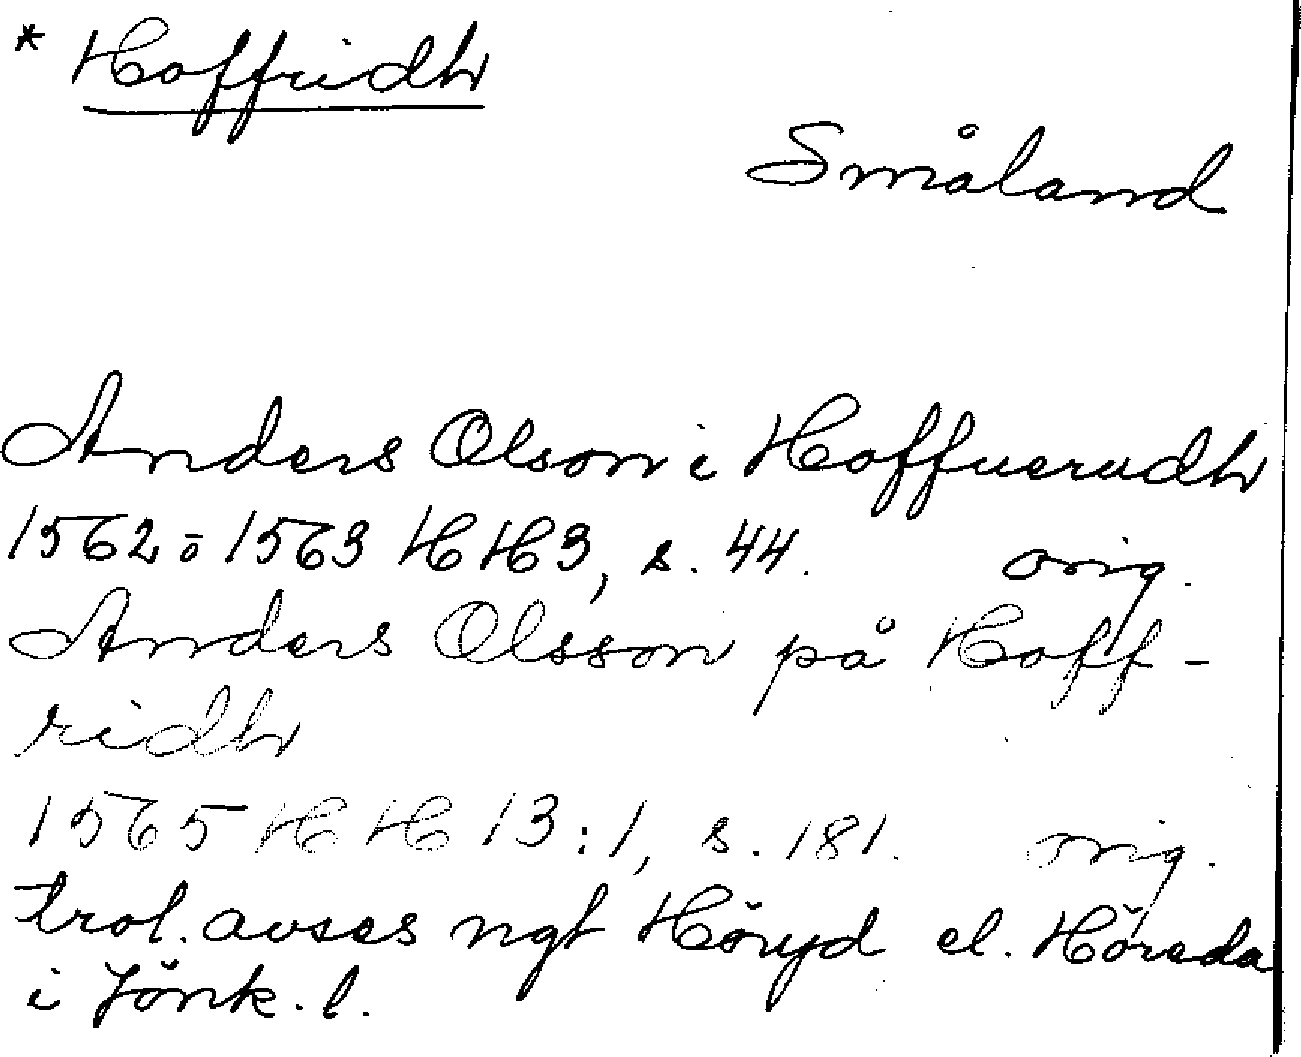 * Hoffridh
Småland
Anders Olson i Hoffuerudh
1562 o 1563 HH3, s. 44. orig.
Anders Olsson på Hoff-
ridh
1565 HH 13:1, s. 181. orig.
trol. avses ngt Höryd el. Höreda
i Jönk. l.